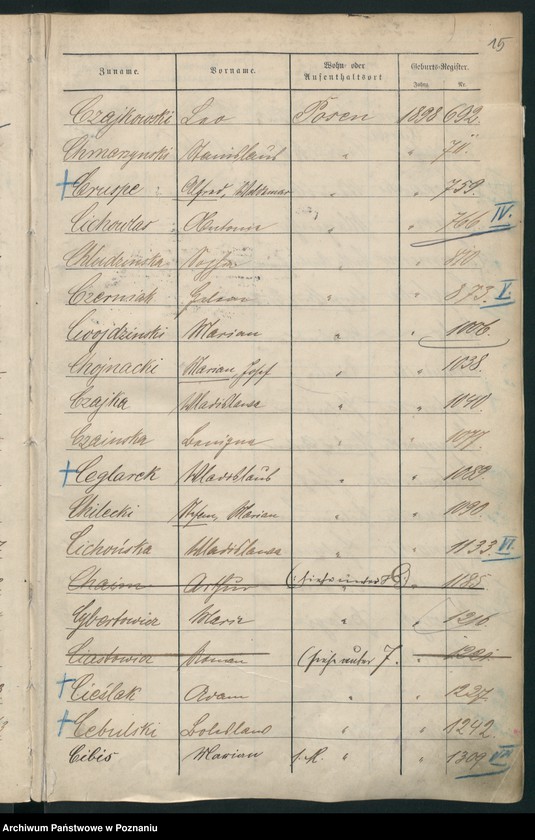 15
Zuname. Vorname. Wohn- oder Aufenthaltsort Geburts-Register.
Jahrg. Nr.
Czajkowski Leo Posen 1898 692.
Chmarzynski Stanislaus "
Cruspe Alfred, Woldemar " 759.
Cichowlas Antonie " 766. IV.
Chudzinska Sofja "
Czerniak " 873. V.
Cwojdzinski Marian " 1006.
Chojnacki Marian, Josef " 1038.
Czajka Wladislawa " 1040.
Czainska Benigna " 1077.
Ceglarek Wladislaus " 1089.
Chilecki Marian " 1090.
Cichońska Wladislawa " 1133. VI.
Chaim Arthur 1185.
Cybertowicz Marie " 1216
Roman (siehe unter J.
Cieślak Adam " 1237.
Cebulski Boleslaus " 1242.
Cibis Marian " 1309
Archiwum Państwowe w Poznaniu